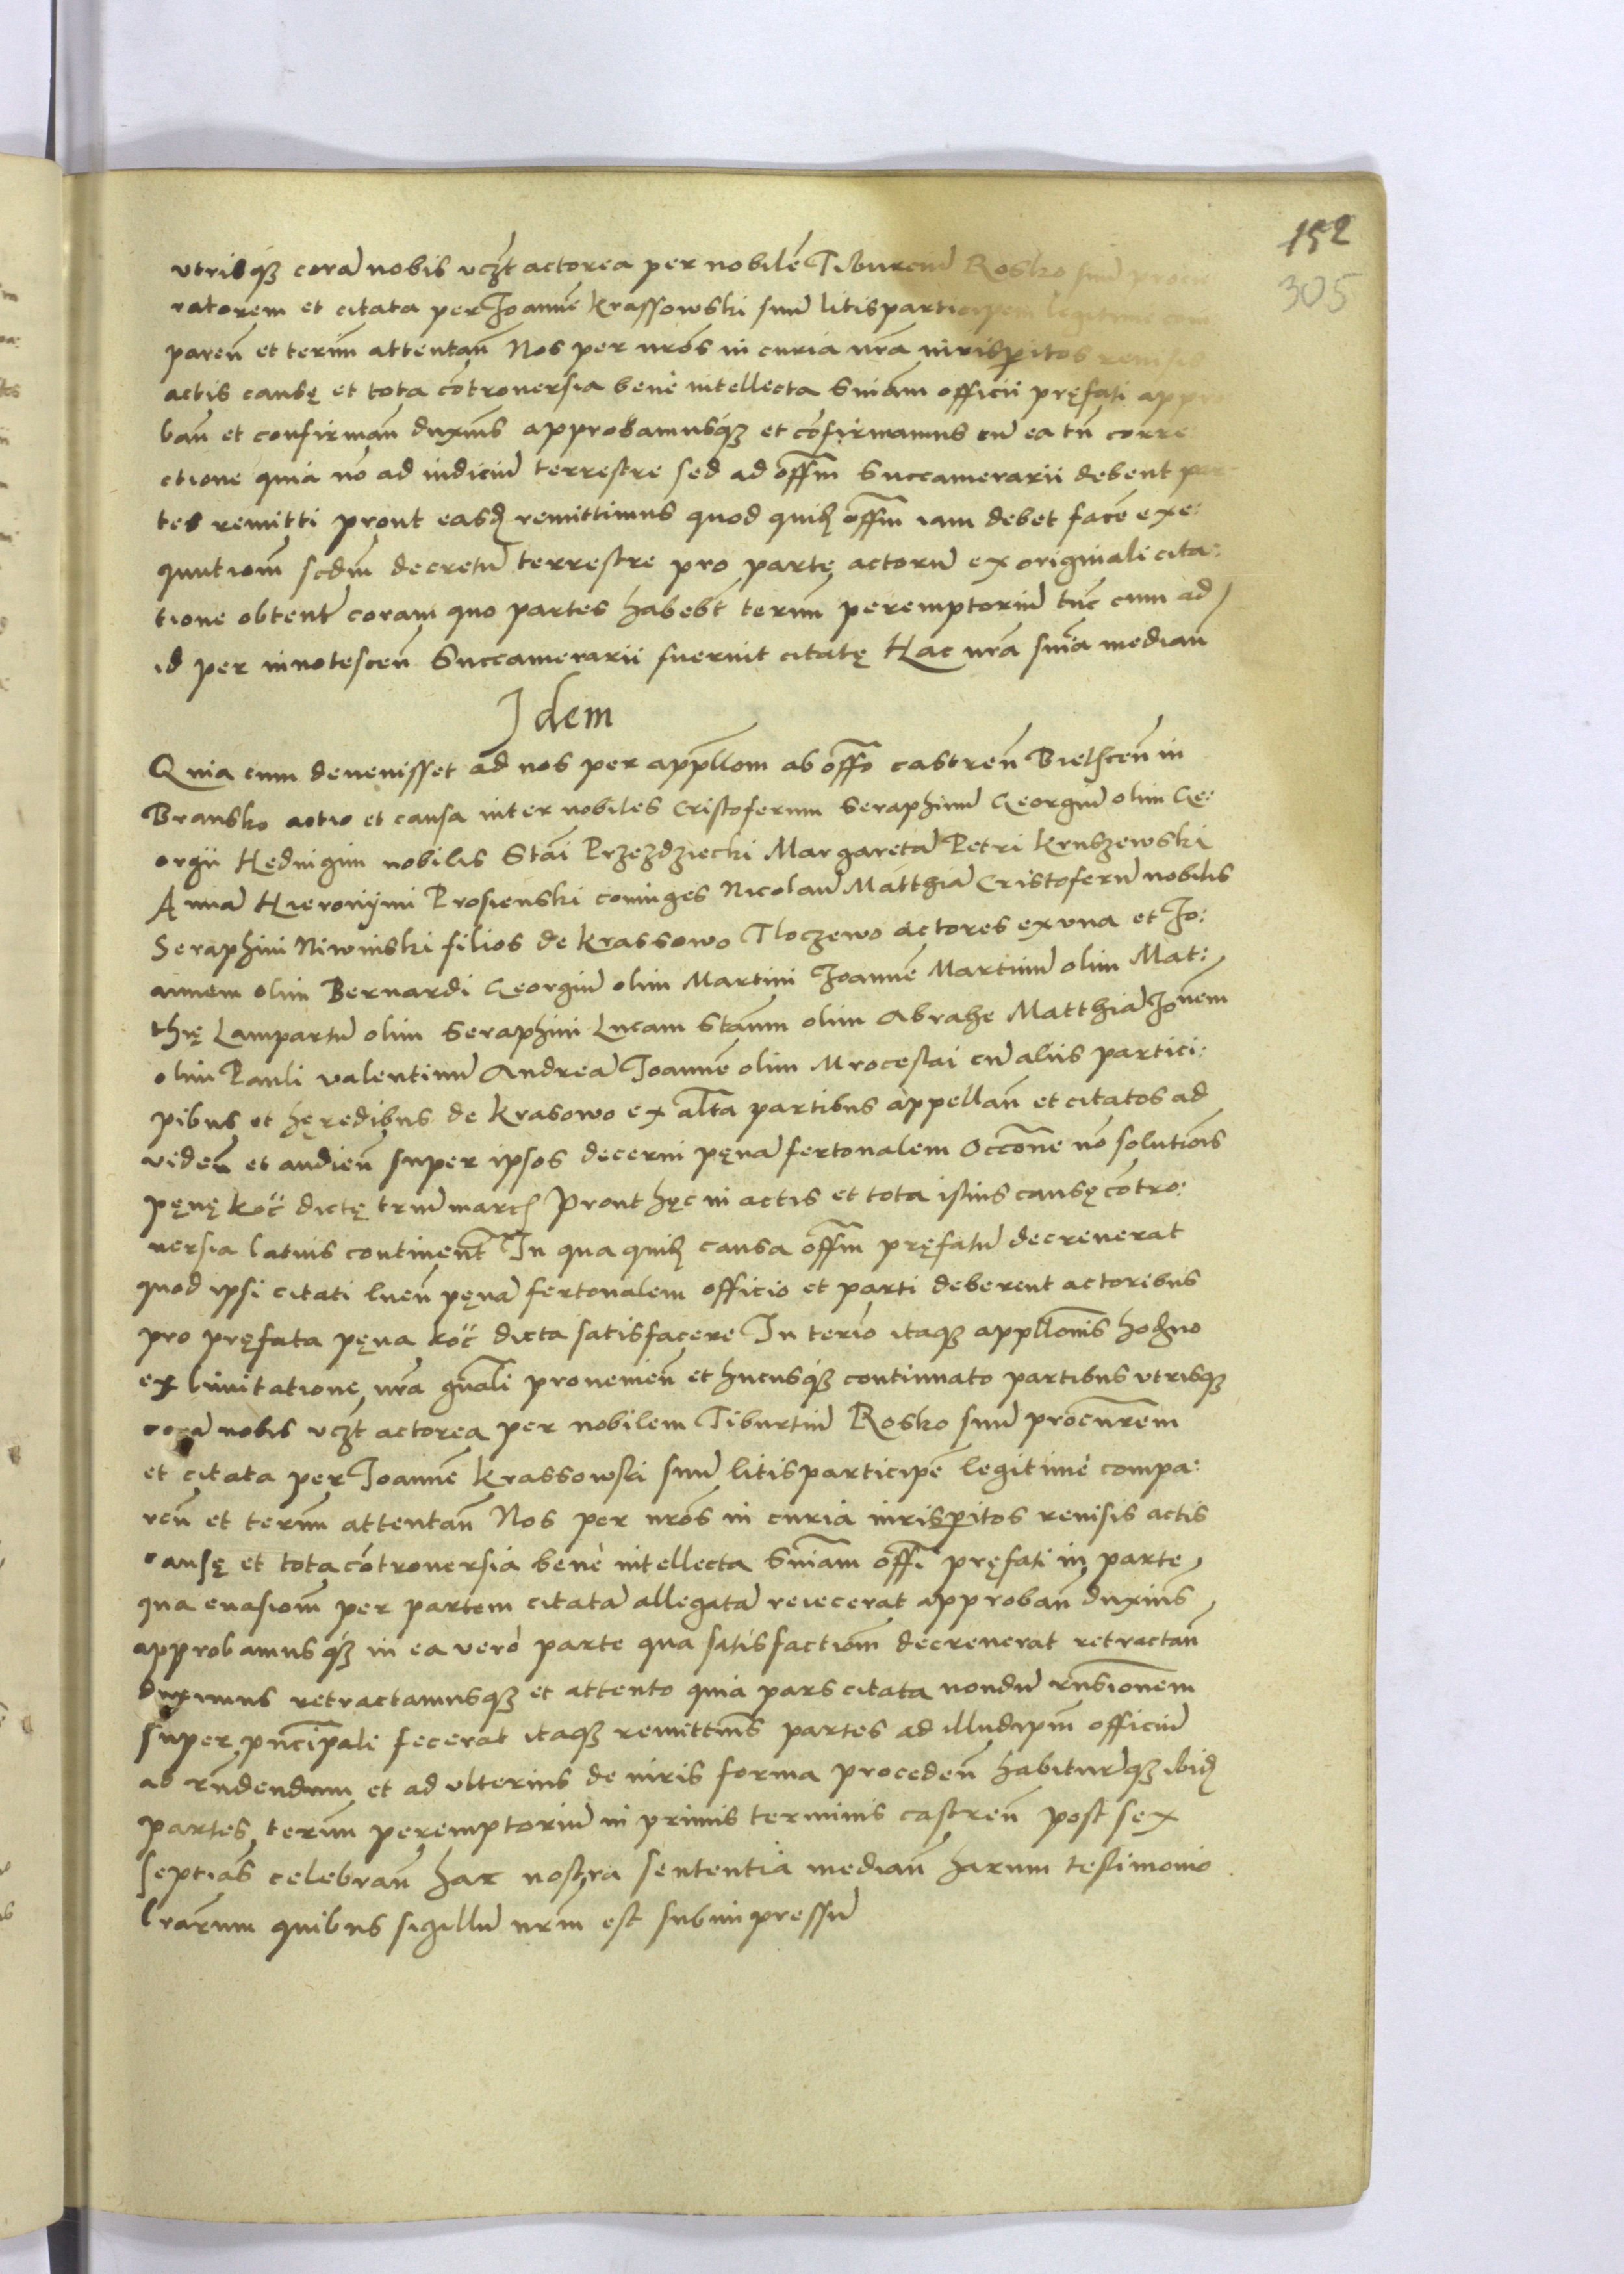 152
305
utrisqȝ corā nobis vcȝt actorea per nobilē Tiburciū Rosko suū procu
ratorem et citata per Joannē Krassowski suū litisparticipem legitime com
pareñ et termī attentañ Nos per nrōs in curia nrā iurisperitos reuisis
actis causę et tota cōtrouersia benè intellecta Sniam officii pręfati appro
bañ et confirmañ duxims approbamusqȝ et cōfirmamus cū ea tñ corre:
ctione quia nō ad iudiciū terrestre sed ad offm Succamerarii debent par
tes remitti prout easd remittimus quod quid offm iam debet facē exe:
qnutiom scdm decretū terrestre pro parte actorū ex originali cita:
tione obtent coram quo partes habebt termī peremptoriū tūc cum ad
id per innotesceñ Succamerarii fuerint citatę Hac nrā snia mediañ
Idem
Quia cum deuenisset ad nos per appllom ab offo castreñ Bielsceñ in
Bransko actio et causa inter nobiles Cristoferum Seraphinū Georgiū olim Ge:
orgii Heduigim nobilis Stai Przezdziecki Margaretā Petri Kruszewski
Annā Hieronijmi Prosienski coniuges Nicolaū Matthiā Cristoferū nobilis
Seraphini Niwinski filios de Krassowo Tloczewo actores ex vna et Jo:
annem olim Bernardi Georgiū olim Martini Joannē Martinū olim Mat:
thię Lampartū olim Seraphini Lucam Stanm olim Abrahe Matthiā Jonem
olim Pauli valentinū Andreā Joannē olim Mrocestai cū aliis partici:
pibus et hęredibus de Krasowo ex alta partibus appellañ et citatos ad
videñ et audieñ super ipsos decerni pęnā fertonalem Occōne nō solutiōis
pęnę koč dictę triū marc Prout hęc in actis et tota istius causę cōtro:
uersia latius continent In qua quid causa offm pręfatū decreuerat
quod ipsi citati lueñ pęnā fertonalem officio et parti deberent actoribus
pro pręfata pęna koč dicta satisfacere In terīo itaqȝ appllonis hodno
ex limitatione nrā gnāli prouenieñ et hucusqȝ continuato partibus utrisqȝ
corā nobis vcȝt actorea per nobilem Tiburtiū Rosko suū procurem
et citata per Joannē Krassowski suū litisparticipē legitimè compa:
reñ et termī attentañ Nos per nrōs in curia iurisperitos reuisis actis
causę et tota cōtrouersia benè intellecta Sniam offi pręfati in parte
qua euasiom per partem citatā allegatā reiecerat approbañ duxims
approbamusqȝ in ea verò parte qua satisfactiom decreuerat retractañ
duximus retractamusqȝ et attento quia pars citata nondū rnsionem
super pncipali fecerat itaqȝ remittims partes ad illud ipm officiū
ad rndendum et ad vlterius de iuris forma procedeñ habiturqȝ ibid
partes termī peremptoriū in primis terminis castreñ post sex
septias celebrañ hac nostra sententia mediañ harum testimonio
lrārum quibus sigillū nrm est subimpressū